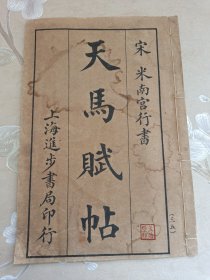 宋 米南宮行書
天馬賦帖
上海進步書局印行